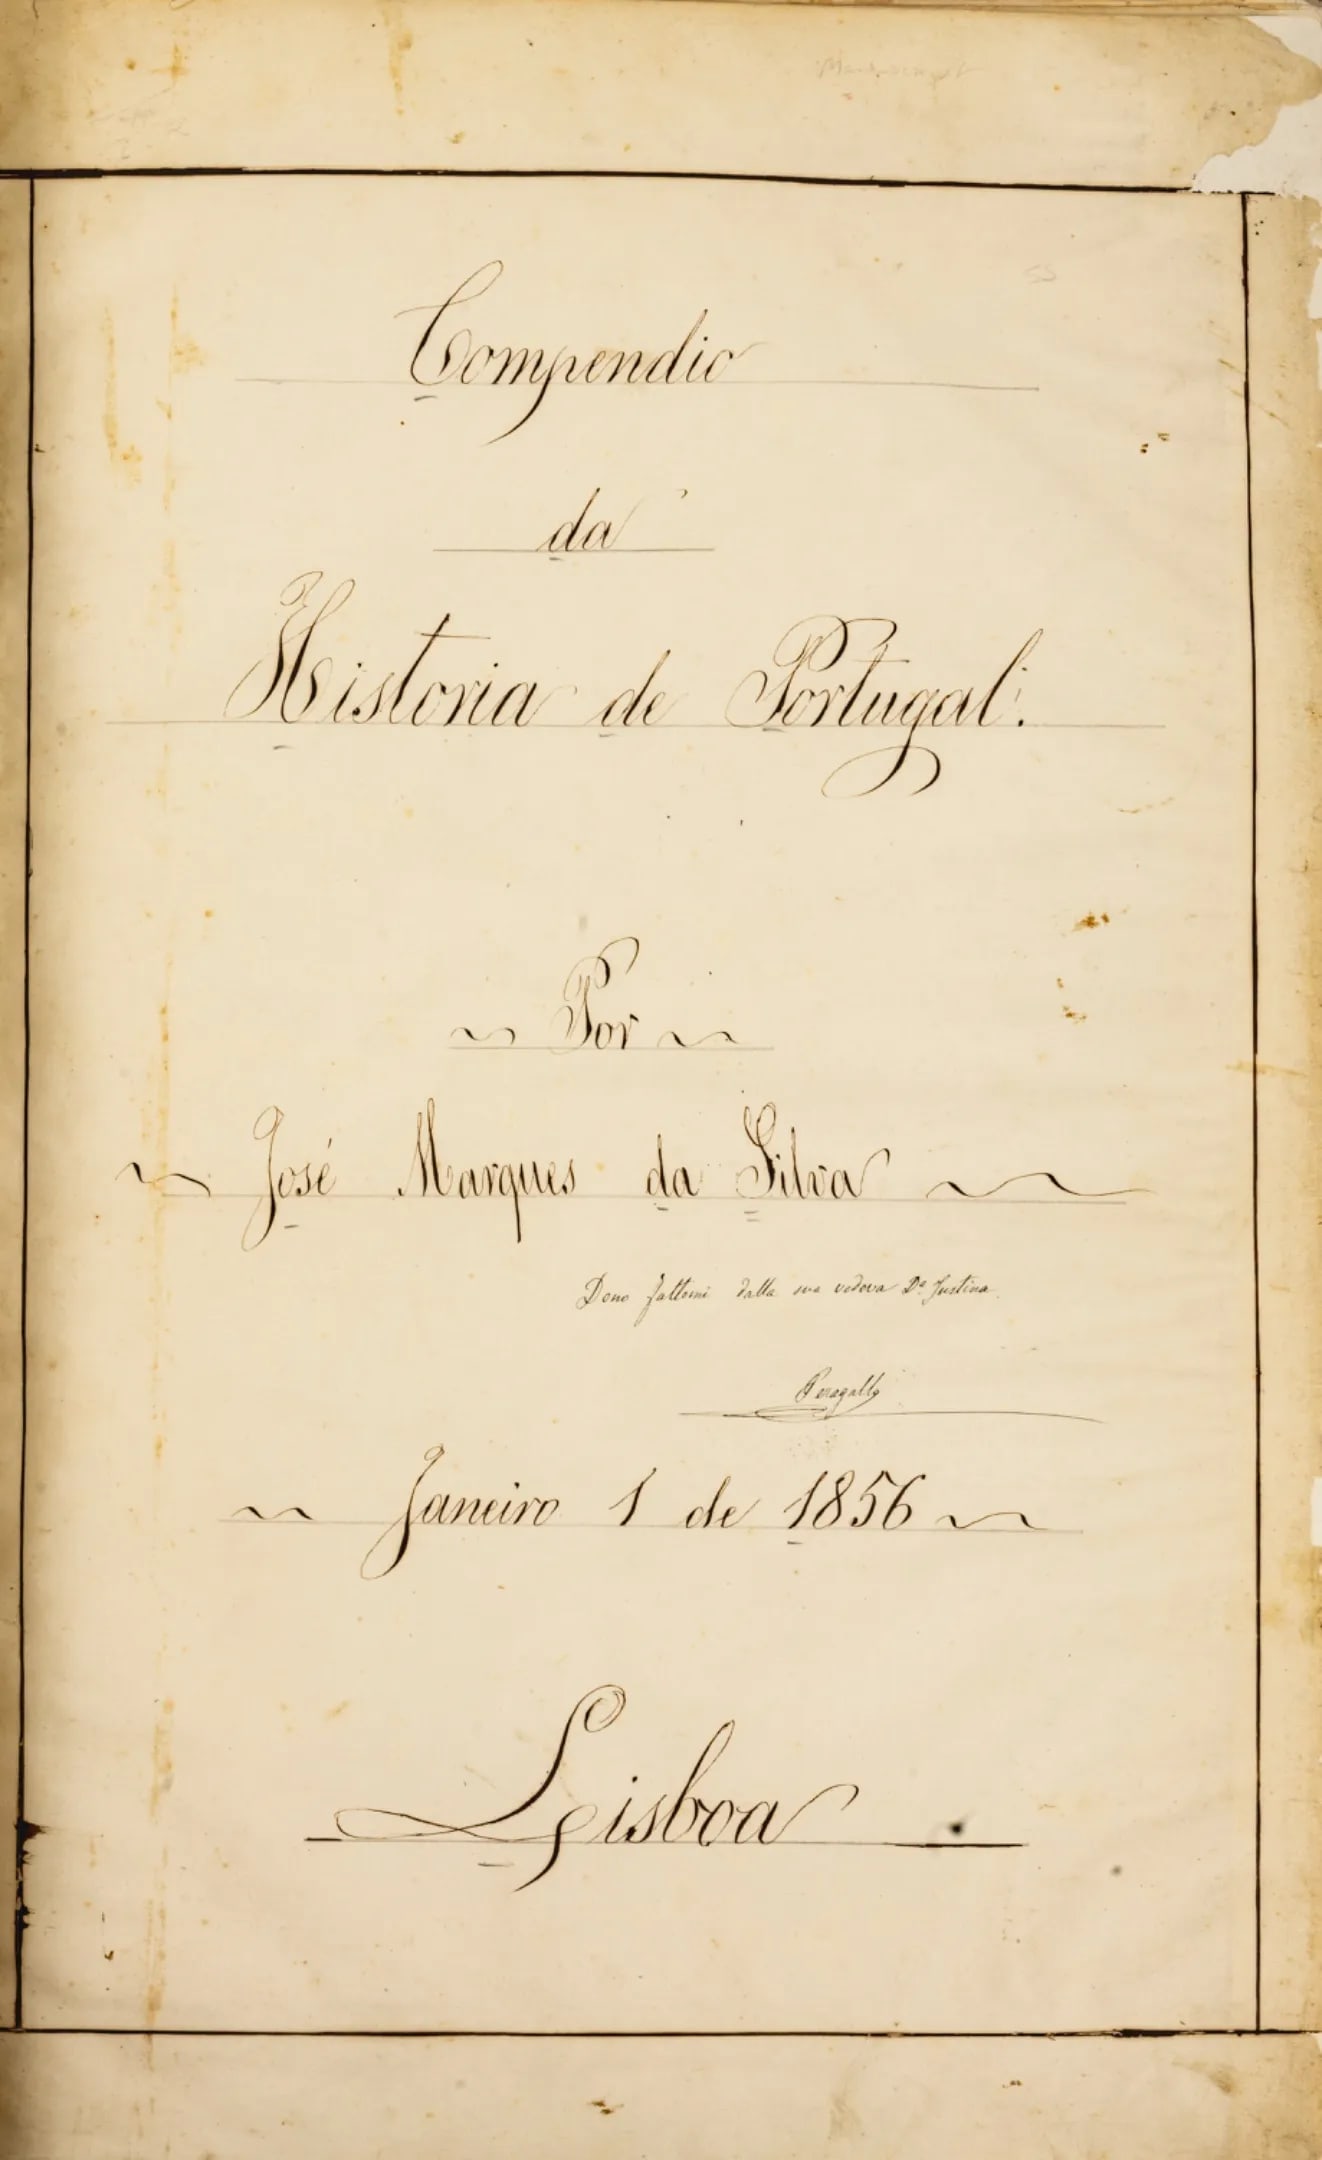 Compendio
da
Historia de Portugal.
Por
José Marques da Silva
Dono fattomi dalla sua vedova Dª Justina
Peragallo
Janeiro 1 de 1856
Lisboa